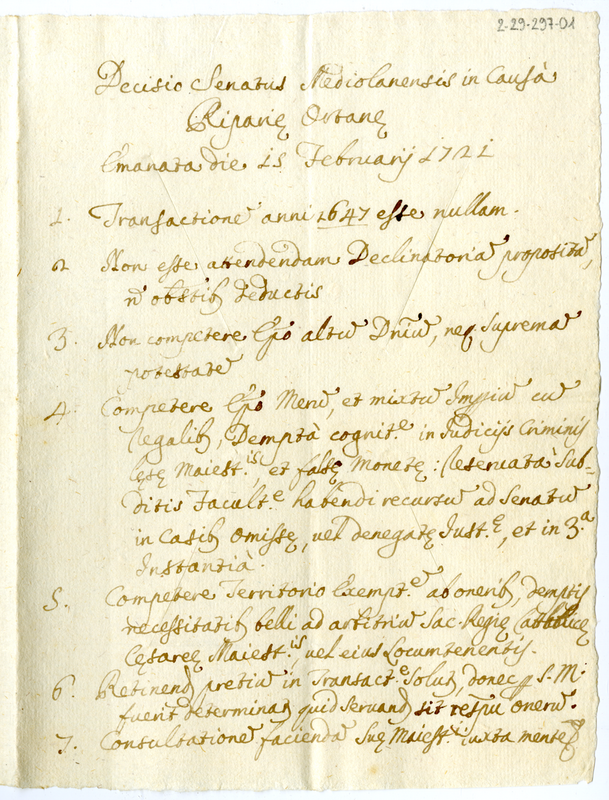 2-29-297-01
Decisio Senatus Mediolanensis in Causà
Riparię Ortanę
Emanata die 15 Februarij 1721
1. Transactione᷃ anni 1647 esse nullam.
2 Non esse attendendam Declinatoria᷃ proposita᷃,
n᷃ obstib᷒ deductis
3. Non competere Ep̃o altu᷃ Dñiu᷃, neq̨ suprema᷃
potestate᷃
4. Competere Ep̃o Meru᷃, et mixtu᷃ Imp̃iu᷃ cu᷃
Regalib᷒, Demptà cognit.ᵉ in Iudicijs Criminis
Lęsę Maiest.ⁱˢ et falsę Monetę: Reservatà Sub-
ditis Facult.ᵉ habendi recursu᷃ ad Senatu᷃
in Casib᷒ omissę, vel denegatę Iust.ę, et in 3.ª
Instantià.
5. Competere Territorio Exempt.ᵉ ab onerib᷒, demptis
necessitatib᷒ belli ad arbitriu᷃ Sac. Regię Catholicę
Cęsareę Maiest.ⁱˢ, vel eius Locumtenentis.
6. Retinend᷒ pretiu᷃ in Transact.ᵉ Solut᷒, donec ꝑ S. M.
fuerit determinat᷒ quid servand᷒ sit respu᷃ oneru᷃.
7. Consultatione᷃ facienda᷃ Suę Maiest.ⁱ iuxta mente᷃